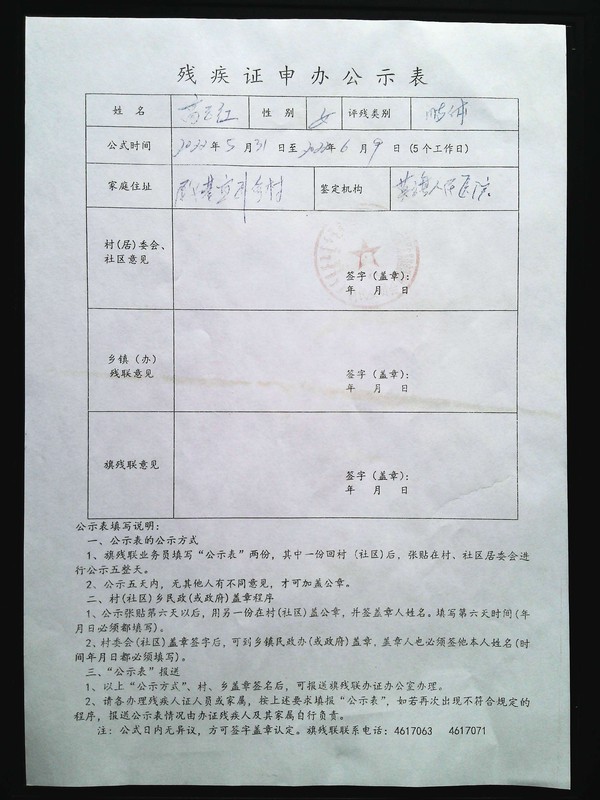 残疾证申办公示表
姓 名 高 红 性 别 女 评残类别 肢体
公式时间 2022年5月31日至2022年6月9日（5个工作日）
家庭住址 村 鉴定机构 旗人民医院
村(居)委会、
社区意见
签字（盖章）：
年 月 日
乡镇（办）
残联意见
签字（盖章）：
年 月 日
旗残联意见
签字（盖章）：
年 月 日
公示表填写说明：
一、公示表的公示方式
1、旗残联业务员填写“公示表”两份，其中一份回村（社区)后，张贴在村、社区居委会进
行公示五整天。
2、公示五天内，无其他人有不同意见，才可加盖公章。
二、村(社区)乡民政(或政府)盖章程序
1、公示张贴第六天以后，用另一份在村(社区)盖公章，并签盖章人姓名。填写第六天时间(年
月日必须都填写)。
2、村委会(社区)盖章签字后，可到乡镇民政办(或政府)盖章，盖章人也必须签他本人姓名(时
间年月日都必须填写)。
三、“公示表”报送
1、以上“公示方式”、村、乡盖章签名后，可报送旗残联办证办公室办理。
2、请各办理残疾人证人员或家属，按上述要求填报“公示表”，如若再次出现不符合规定的
程序，报送公示表情况由办证残疾人及其家属自行负责。
注：公式日内无异议，方可签字盖章认定。旗残联联系电话：4617063 4617071